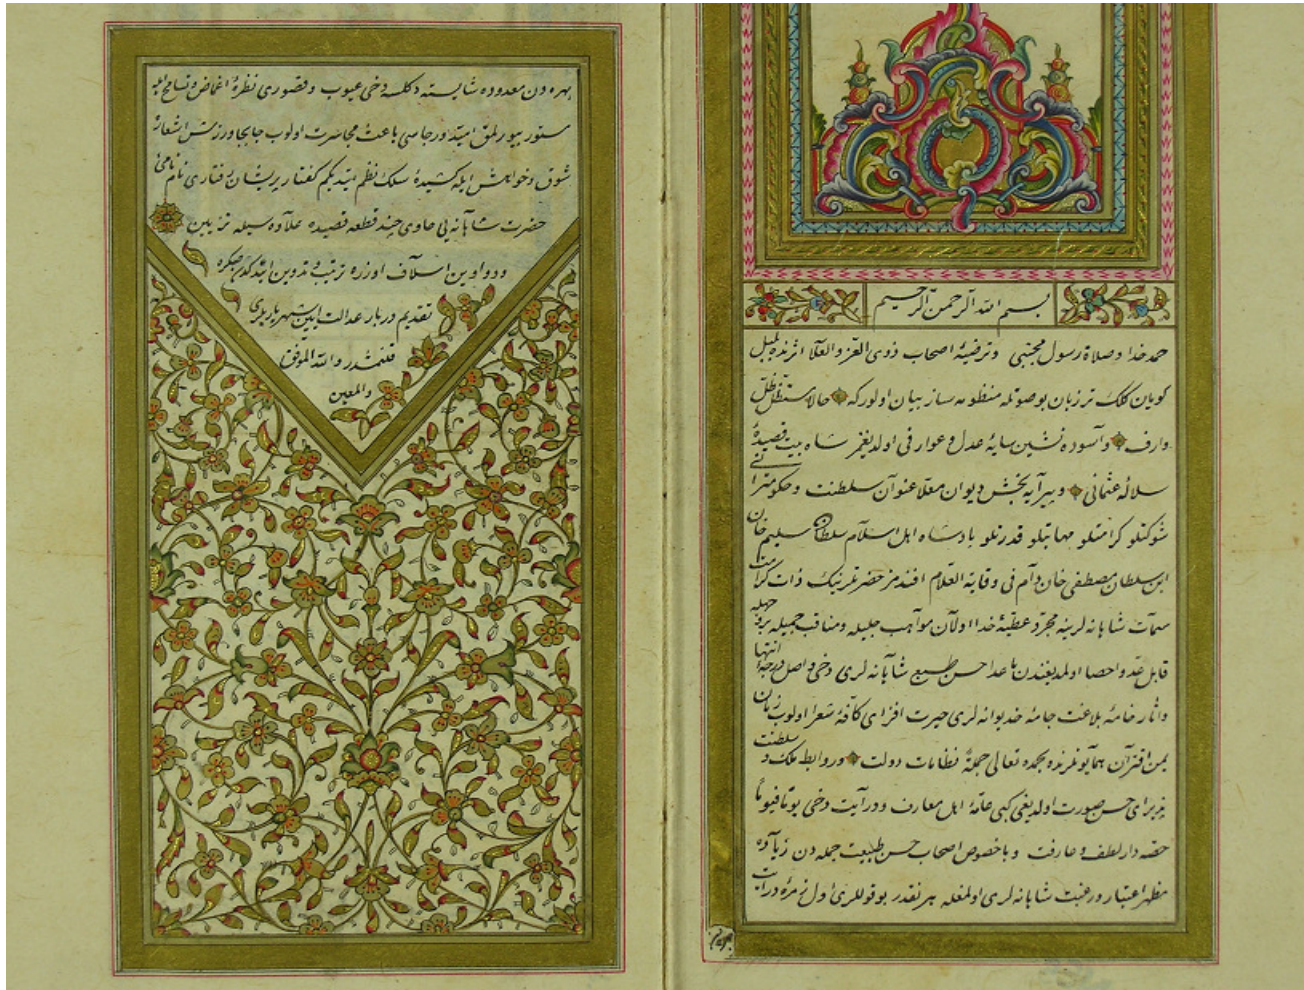 بسم الله الرحمن الرحيم
حمد خدا و صلاة رسول مجتبى و ترضيۀ اصحاب ذوى العز و العلا اثرنده بلبل
كويان كلك تر زبان بو صوتله منظومه ساز بيان اولور كه حالا مستظل ظل
وارف و آسوده نشين سايۀ عدل و عوارفى اولديغمز شاه بيت قصيدۀ
سلالۀ عثمانى و پيرايه بخش ديوان معلا عنوان سلطنت و حكومترانى
شوكتلو كرامتلو مهابتلو قدرتلو پادشاه اهل اسلام سلطان سليم خان
ابن سلطان مصطفى خان دام فى وقاية العلام افندمز حضرتلرينك ذات كرامت
سمات شاهانه لرينه مجرد عطيۀ خدا اولان مواهب جليله و مناقب جميله
قابل عد و احصا اولمديغندن ماعدا حسن طبع شاهانه لرى دخى واصل درجۀ انتها
و آثار خامۀ بلاغت جامۀ خديوانه لرى حيرت افزاى كافۀ شعرا اولوب زمان
يمن اقتران همايونلرنده بحمده تعالى جملۀ نظامات دولت و روابط ملك و سلطنت
پذيراى حسن صورت اولديغى كبى عامۀ اهل معارف و درايت دخى
حصه دار لطف و عارفت و باخصوص اصحاب حسن طبيعت جمله دن زياده
مظهر اعتبار و رغبت شاهانه لرى اولمغله هر نقدر بو قوللرى اول زمرۀ درايت
بهره دن معدوده شايسته دكلسه دخى عيوب و قصورى نظرۀ اغماض و تسامح ايله
مستور بيورلمق اميد و رجاسى باعث مجاسرت اولوب جابجا ورزش اشعاره
شوق و خواهش ايله كشيدۀ سلك نظم ايتديكم كفتار پريشان رفتارى نام نامى
حضرت شاهانه يى حاوى چند قطعه قصيده علاوه سيله تزيين
و دواوين اسلاف اوزره ترتيب و تدوين
تقديم دربار عدالت
قلنمشدر والله الموفق
والمعين